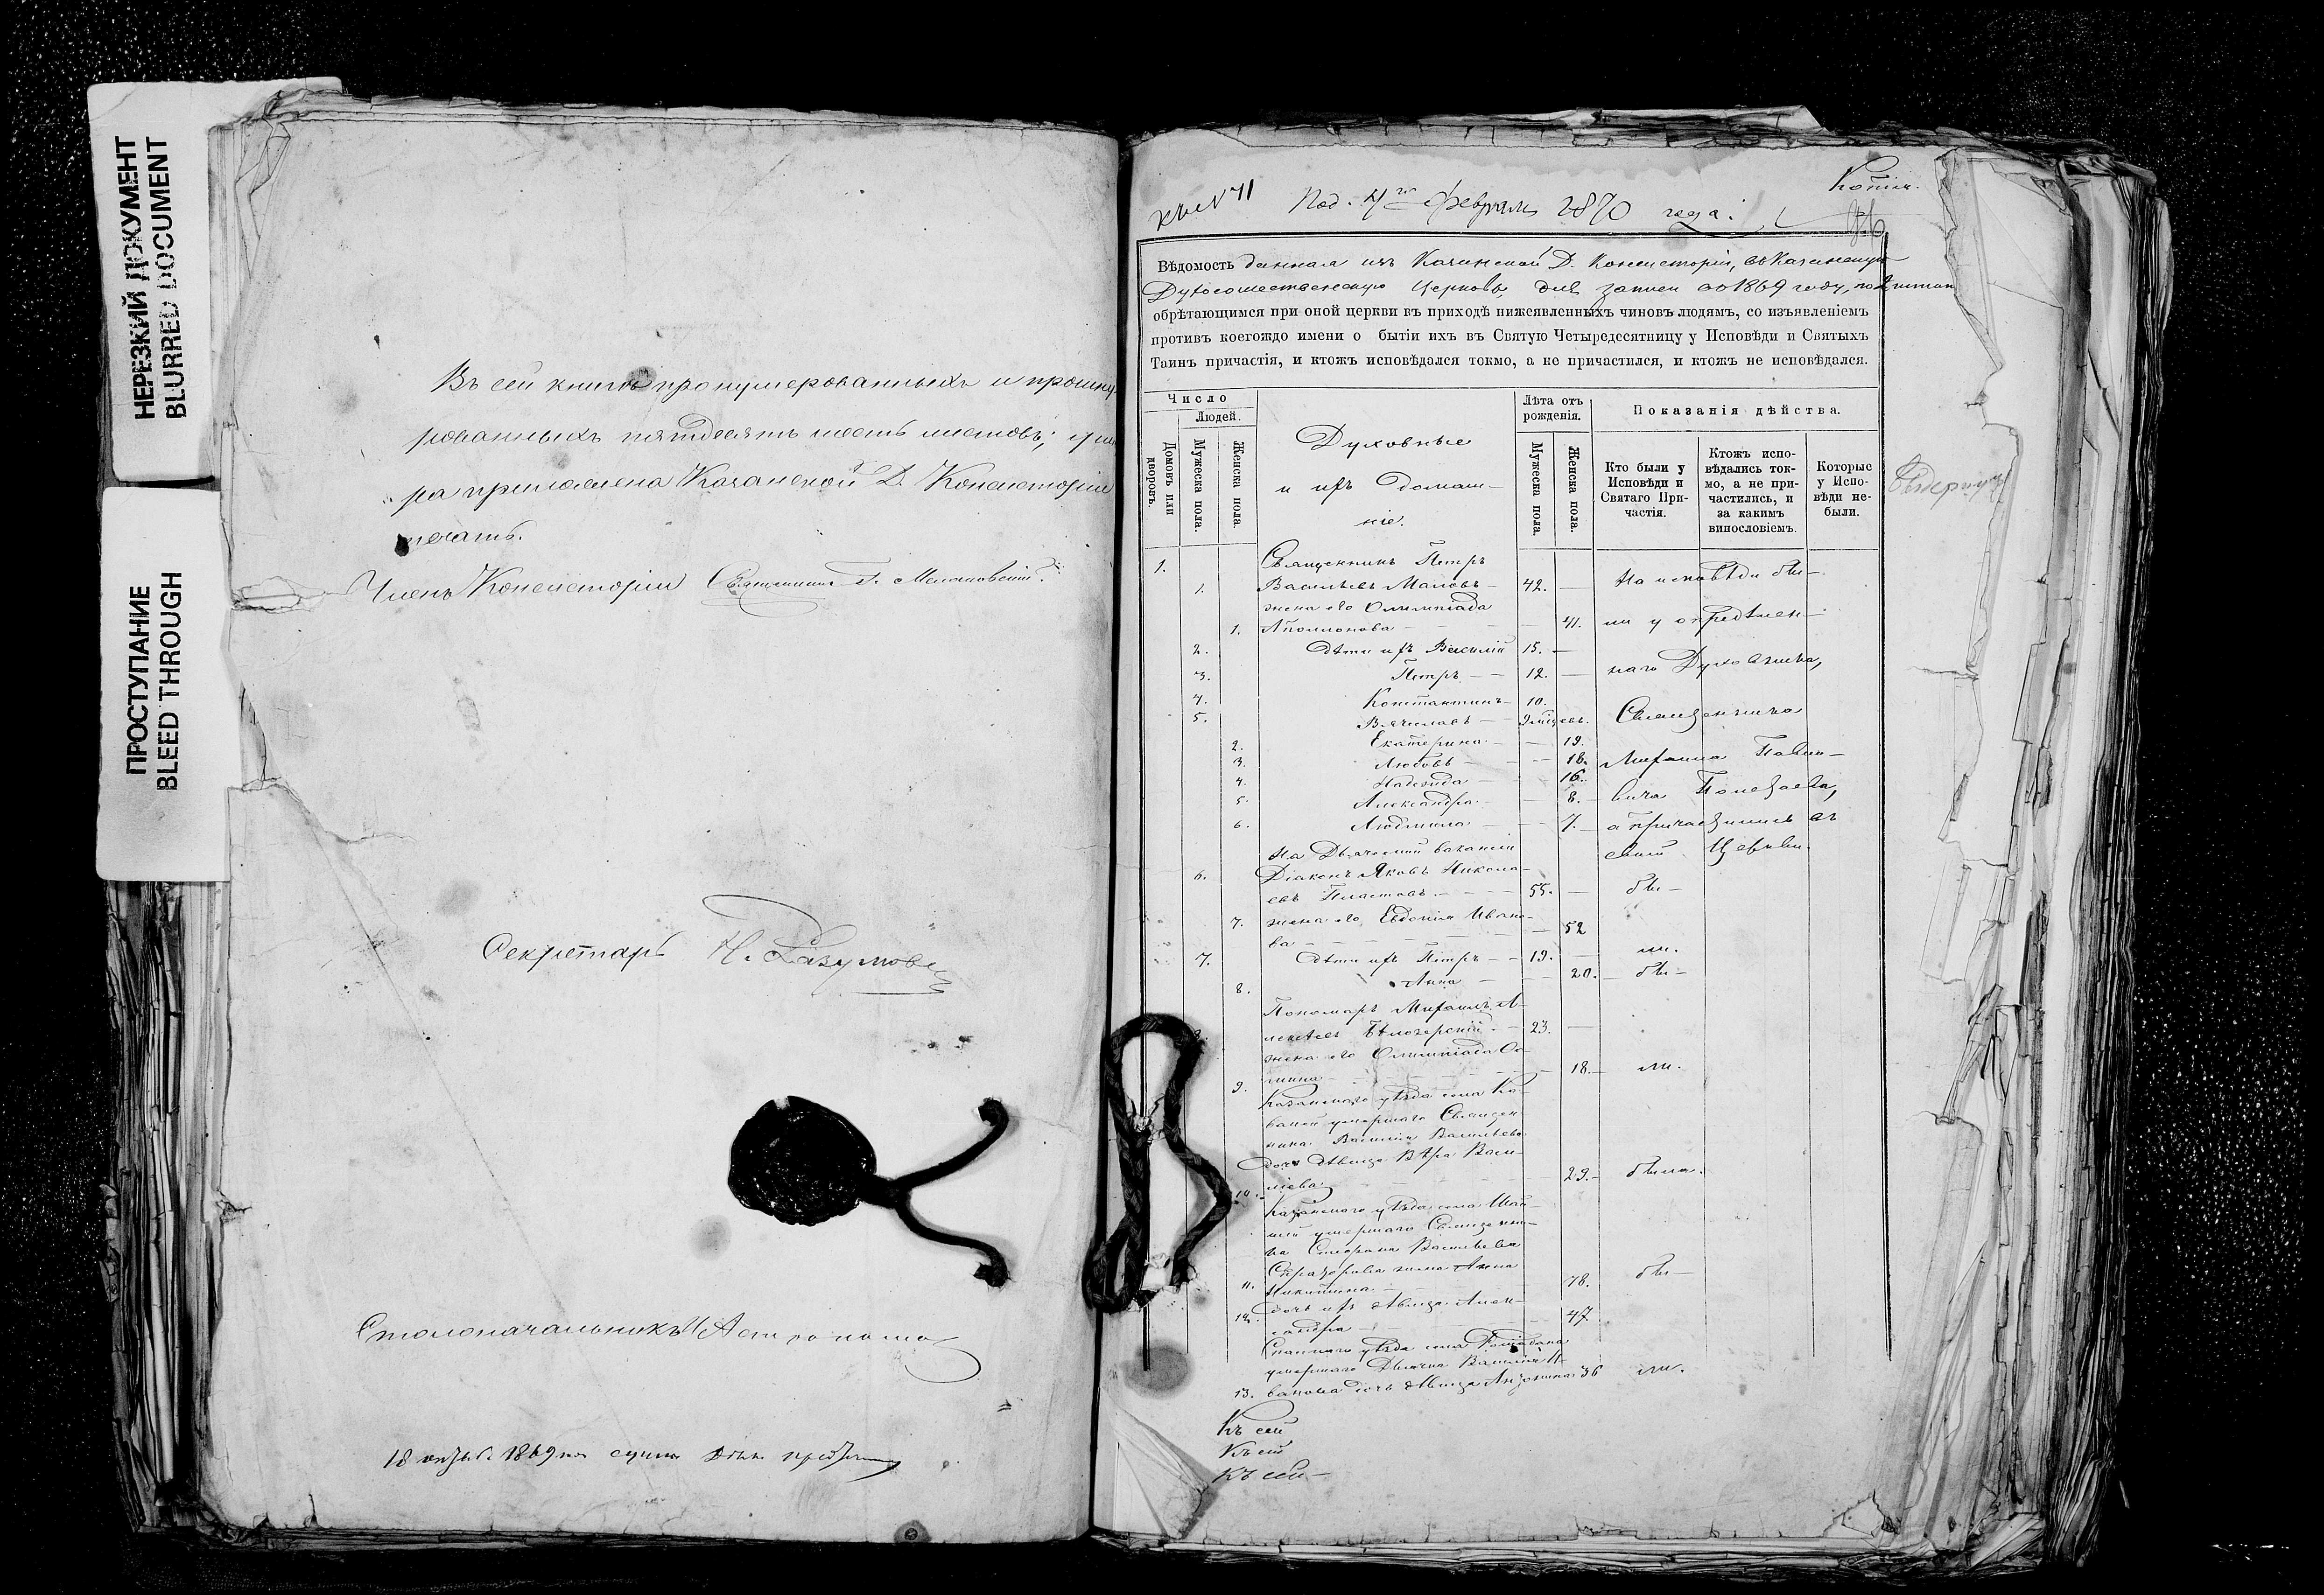 НЕРЕЗКИЙ ДОКУМЕНТ
BLURRED DOCUMENT
ПРОСТУПАНИЕ
BLEED THROUGH
Въ сей книгѣ пронумерованныхъ и прошну-
рованныхъ пятдесятъ шесть листовъ;
приложена Казанской Д. Консисторіи
печать.
Членъ Консисторіи Священникъ
Секретарь Н. Разумов
Столоначальникъ
18 1869
Копія.
№ 71 Под. 4го Февраля 1870 года.
Вѣдомость данная изъ Казанской Д. Консисторіи, въ Казанскую
Духосошественскую Церковь, для записи по 1869 году,
обрѣтающимся при оной церкви въ приходѣ нижеявленныхъ чиновъ людямъ, со изъявленіемъ
противъ коегождо имени о бытіи ихъ въ Святую Четыредесятницу у Исповѣди и Святыхъ
Таинъ причастія, и ктожъ исповѣдался токмо, а не причастился, и ктожъ не исповѣдался.
Число
Людей.
Домовъ или дворовъ.
Мужеска пола.
Женска пола.
Духовные
и ихъ домаш-
ніе.
Лѣта отъ рожденія.
Мужеска пола.
Женска пола.
Показанія дѣйства.
Кто были у Исповѣди и Святаго При- частія.
Ктожъ испо- вѣдались ток- мо, а не при- частились, и за какимъ винословіемъ.
Которые у Испо- вѣди не- были.
1. Священникъ Петръ
1. Васильевъ Маловъ 42. На исповѣди бы-
жена его Олимпіада
1. Аполлонова 41. ли у опредѣлен-
2. Дѣти ихъ Василій 15.
3. Петръ 12. наго Духовника,
4. Константинъ 10.
5. Вячеславъ 9 мѣсяцевъ. Священника
2. Екатерина 19.
3. Любовь 18. Михаила Павло-
4. Надежда 16.
5. Александра 8. вича
6. Людмила 7. а причастились въ
На Дьяческой вакансіи своей Церкви.
6. Діаконъ Яковъ Никола-
евъ Пластовъ 55. бы-
7. жена его Евдокія Ивано-
ва 52
7. Дѣти ихъ Петръ 19. ли.
8. Анна 20. бы-
Пономарь Михаилъ А-
лексѣевъ Бѣлозерскій 23.
жена его Олимпіада Ос-
9. 18. ли.
Казанскаго уѣзда села Ко-
умершаго Священ-
ника Василія Васильева
дочь дѣвица Вѣра Васи-
10. льева 29. была.
Казанскаго уѣзда села
умершаго Священни-
ка Стефана Васильева
жена Анна
11. Никитина 78. бы-
12. дочь ихъ дѣвица Алек-
сандра 47.
Спасскаго уѣзда села
умершаго Дьячка Василія И-
13. ванова дочь дѣвица 36 ли.
Къ сей
Къ сей
Къ сей